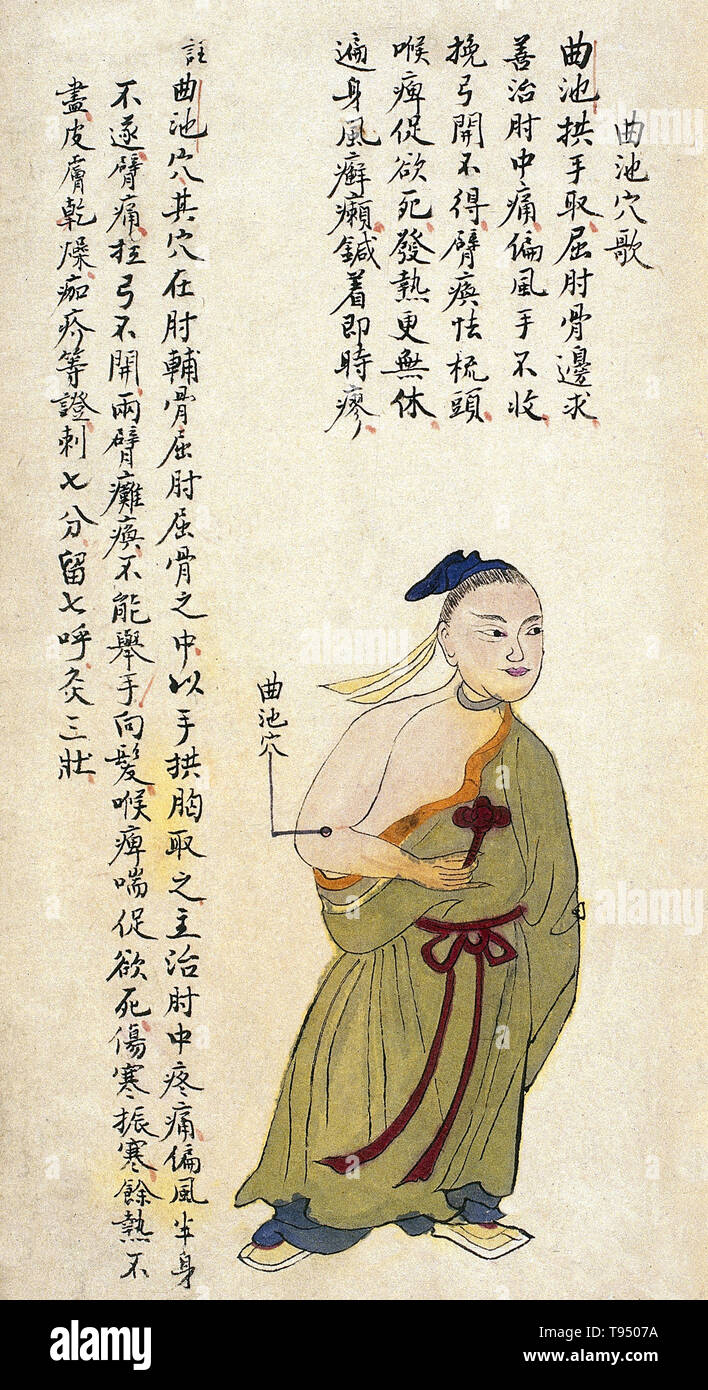 曲池穴歌
曲池拱手取屈肘骨邊求
善治肘中痛偏風手不收
挽弓開不得臂瘓怯梳頭
喉痺促欲死發熱更無休
遍身風癬癩鍼着即時瘳
註曲池穴其穴在肘輔骨屈肘屈骨之中以手拱胸取之主治肘中疼痛偏風半身
不遂臂痛拉弓不開兩臂癱瘓不能舉手向髮喉痺喘促欲死傷寒振寒餘熱不
盡皮膚乾燥痂疥等證刺七分留七呼灸三壯
曲池穴
alamy
alamy
alamy
alamy
alamy
alamy
Image ID: T9507A
www.alamy.com